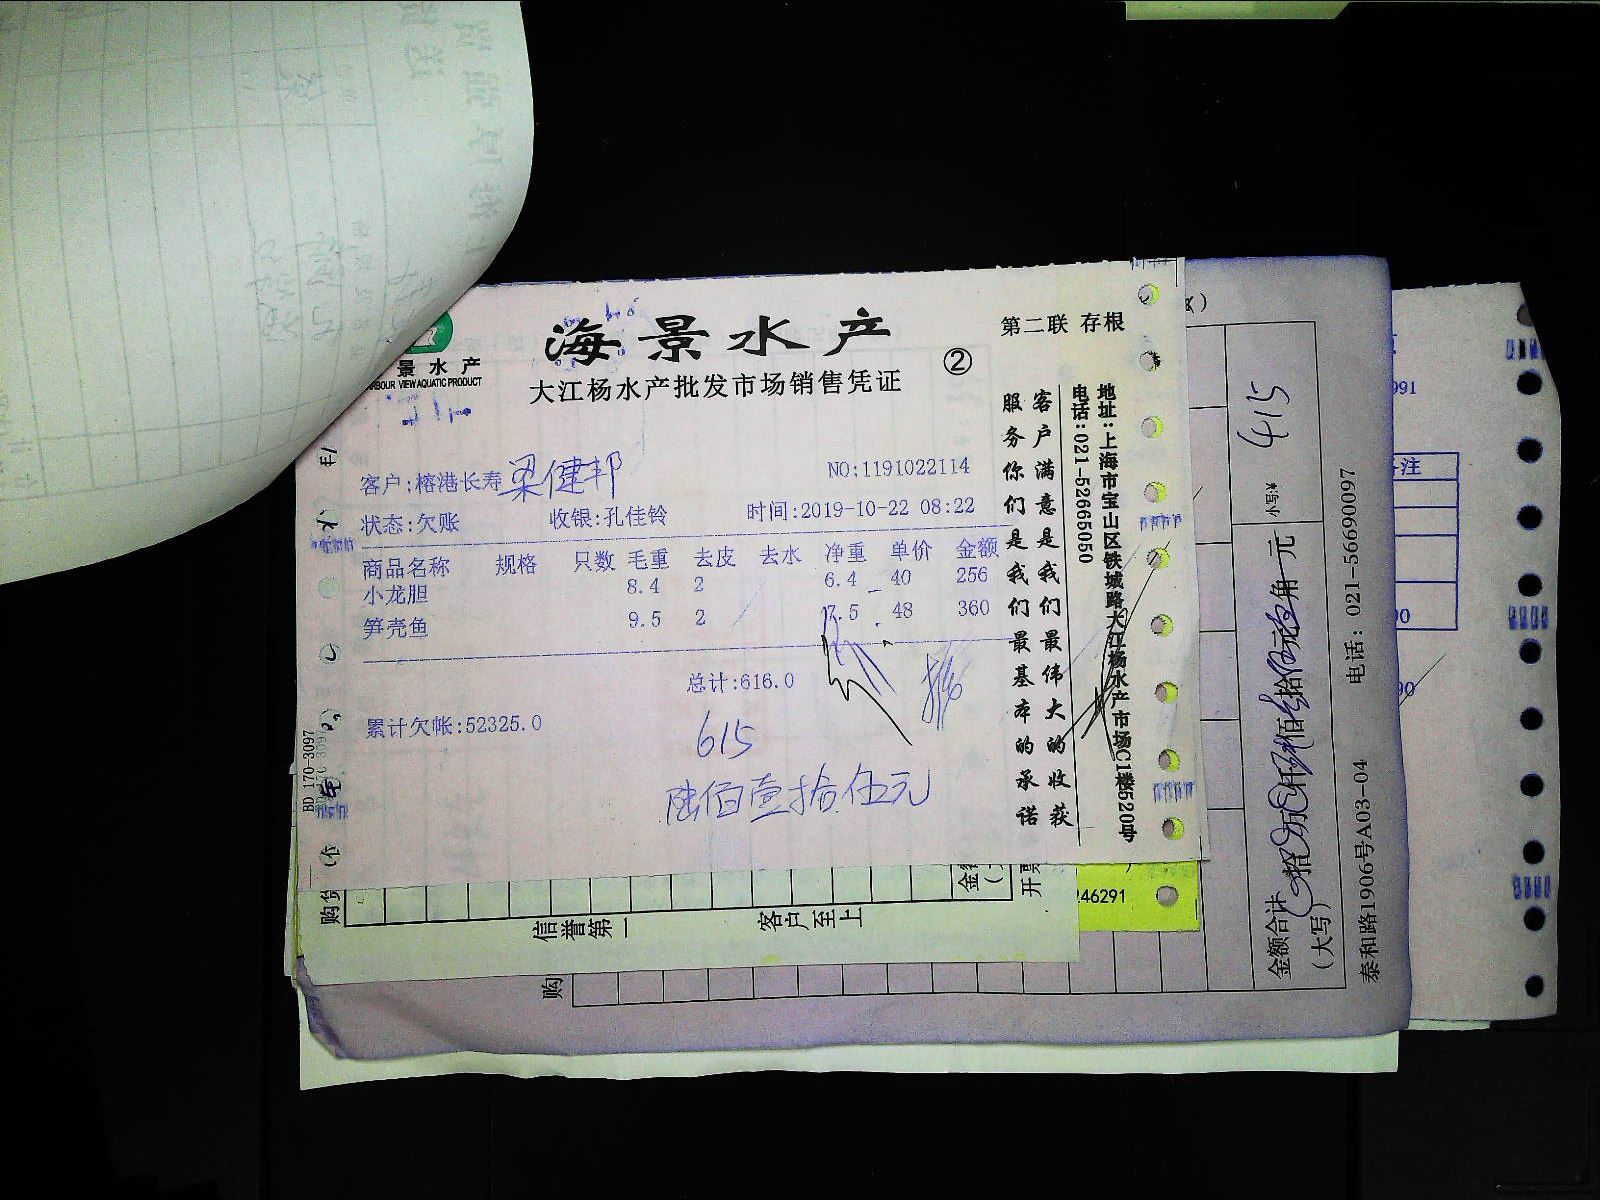 海景水产
第二联 存根
景水产
RBOUR VIEW AQUATIC PRODUCT
大江杨水产批发市场销售凭证
②
客户:榕港长寿 梁健邦
NO:1191022114
状态:欠账 收银:孔佳铃 时间:2019-10-22 08:22
商品名称 规格 只数 毛重 去皮 去水 净重 单价 金额
小龙胆 8.4 2 6.4 40 256
笋壳鱼 9.5 2 7.5 48 360
总计:616.0
累计欠帐:52325.0
615
陆佰壹拾伍元
客户满意是我们最伟大的收获
服务你们是我们最基本的承诺
地址:上海市宝山区铁城路大江杨水产市场C1楼520号
电话:021-52665050
BD 170-3097
购货
信誉第一
客户至上
开票
246291
购
金额合计
(大写)
小写:¥
415
泰和路1906号A03-04 电话:021-56690097
991
注